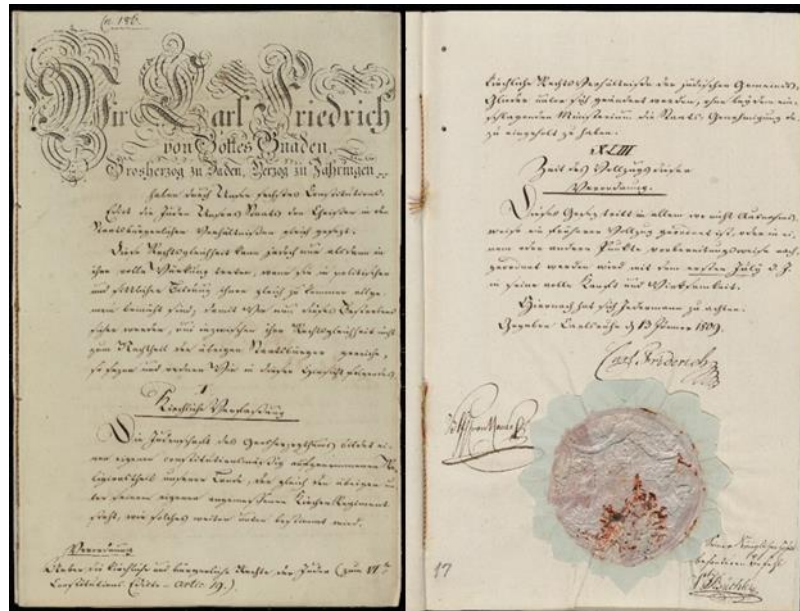 Cn. 186.
Wir Carl Friedrich
von Gottes Gnaden,
Grosherzog zu Baden, Herzog zu Zähringen
haben durch Unser sechstes Constitutions-
Edict die Juden Unsers Staats den Christen in den
Staatsbürgerlichen Verhältnissen gleich gesezt.
Diese Rechtsgleichheit kann jedoch nur alsdann in
ihre volle Würkung treten, wenn sie in politischer
und sittlicher Bildung ihnen gleich zu kommen allge-
mein bemüht sind; damit Wir nun dieses Bestrebens
sicher werden, und inzwischen ihre Rechtsgleichheit nicht
zum Nachtheil der übrigen Staatsbürger gereiche,
so sezen und ordnen Wir in dieser Hinsicht folgendes.
I
Kirchliche Verfassung
Die Judenschaft des Grosherzogthums bildet ei-
nen eigenen constitutionsmäsig aufgenommenen Re-
ligionstheil unserer Lande, der gleich den übrigen un-
ter seinem eigenen angemessenen Kirchen Regiment
steht, wie solches weiter unten bestimmt wird.
Verordnung
Ueber die kirchliche und bürgerliche Rechte der Juden (zum VI.ten
Constitutions Edikte - Artic 19.)
kirchliche Rechts Verhältnisse der jüdischen Gemeinds-
Glieder unter sich geändert werden, ohne von
schlagenden Ministerium die Staats-Genehmigung da-
zu eingeholt zu haben.
XLIII
Zeit des Vollzugs dieser
Verordnung.
Dieses Gesez tritt in allem wo nicht Ausnahms-
weise ein früherer Vollzug geordnet ist, oder in ei-
nem oder andern Punkte vorbereitungsweise nach-
geordnet werden wird mit dem ersten July d. J.
in seine volle Kraft und Wirksamkeit.
Hiernach hat sich Jedermann zu achten.
Gegeben Carlsruhe d 13 Jänner 1809.
Carl Friderich
17
Seiner Königlichen Hoheit
besonderen Befehl
Büchler